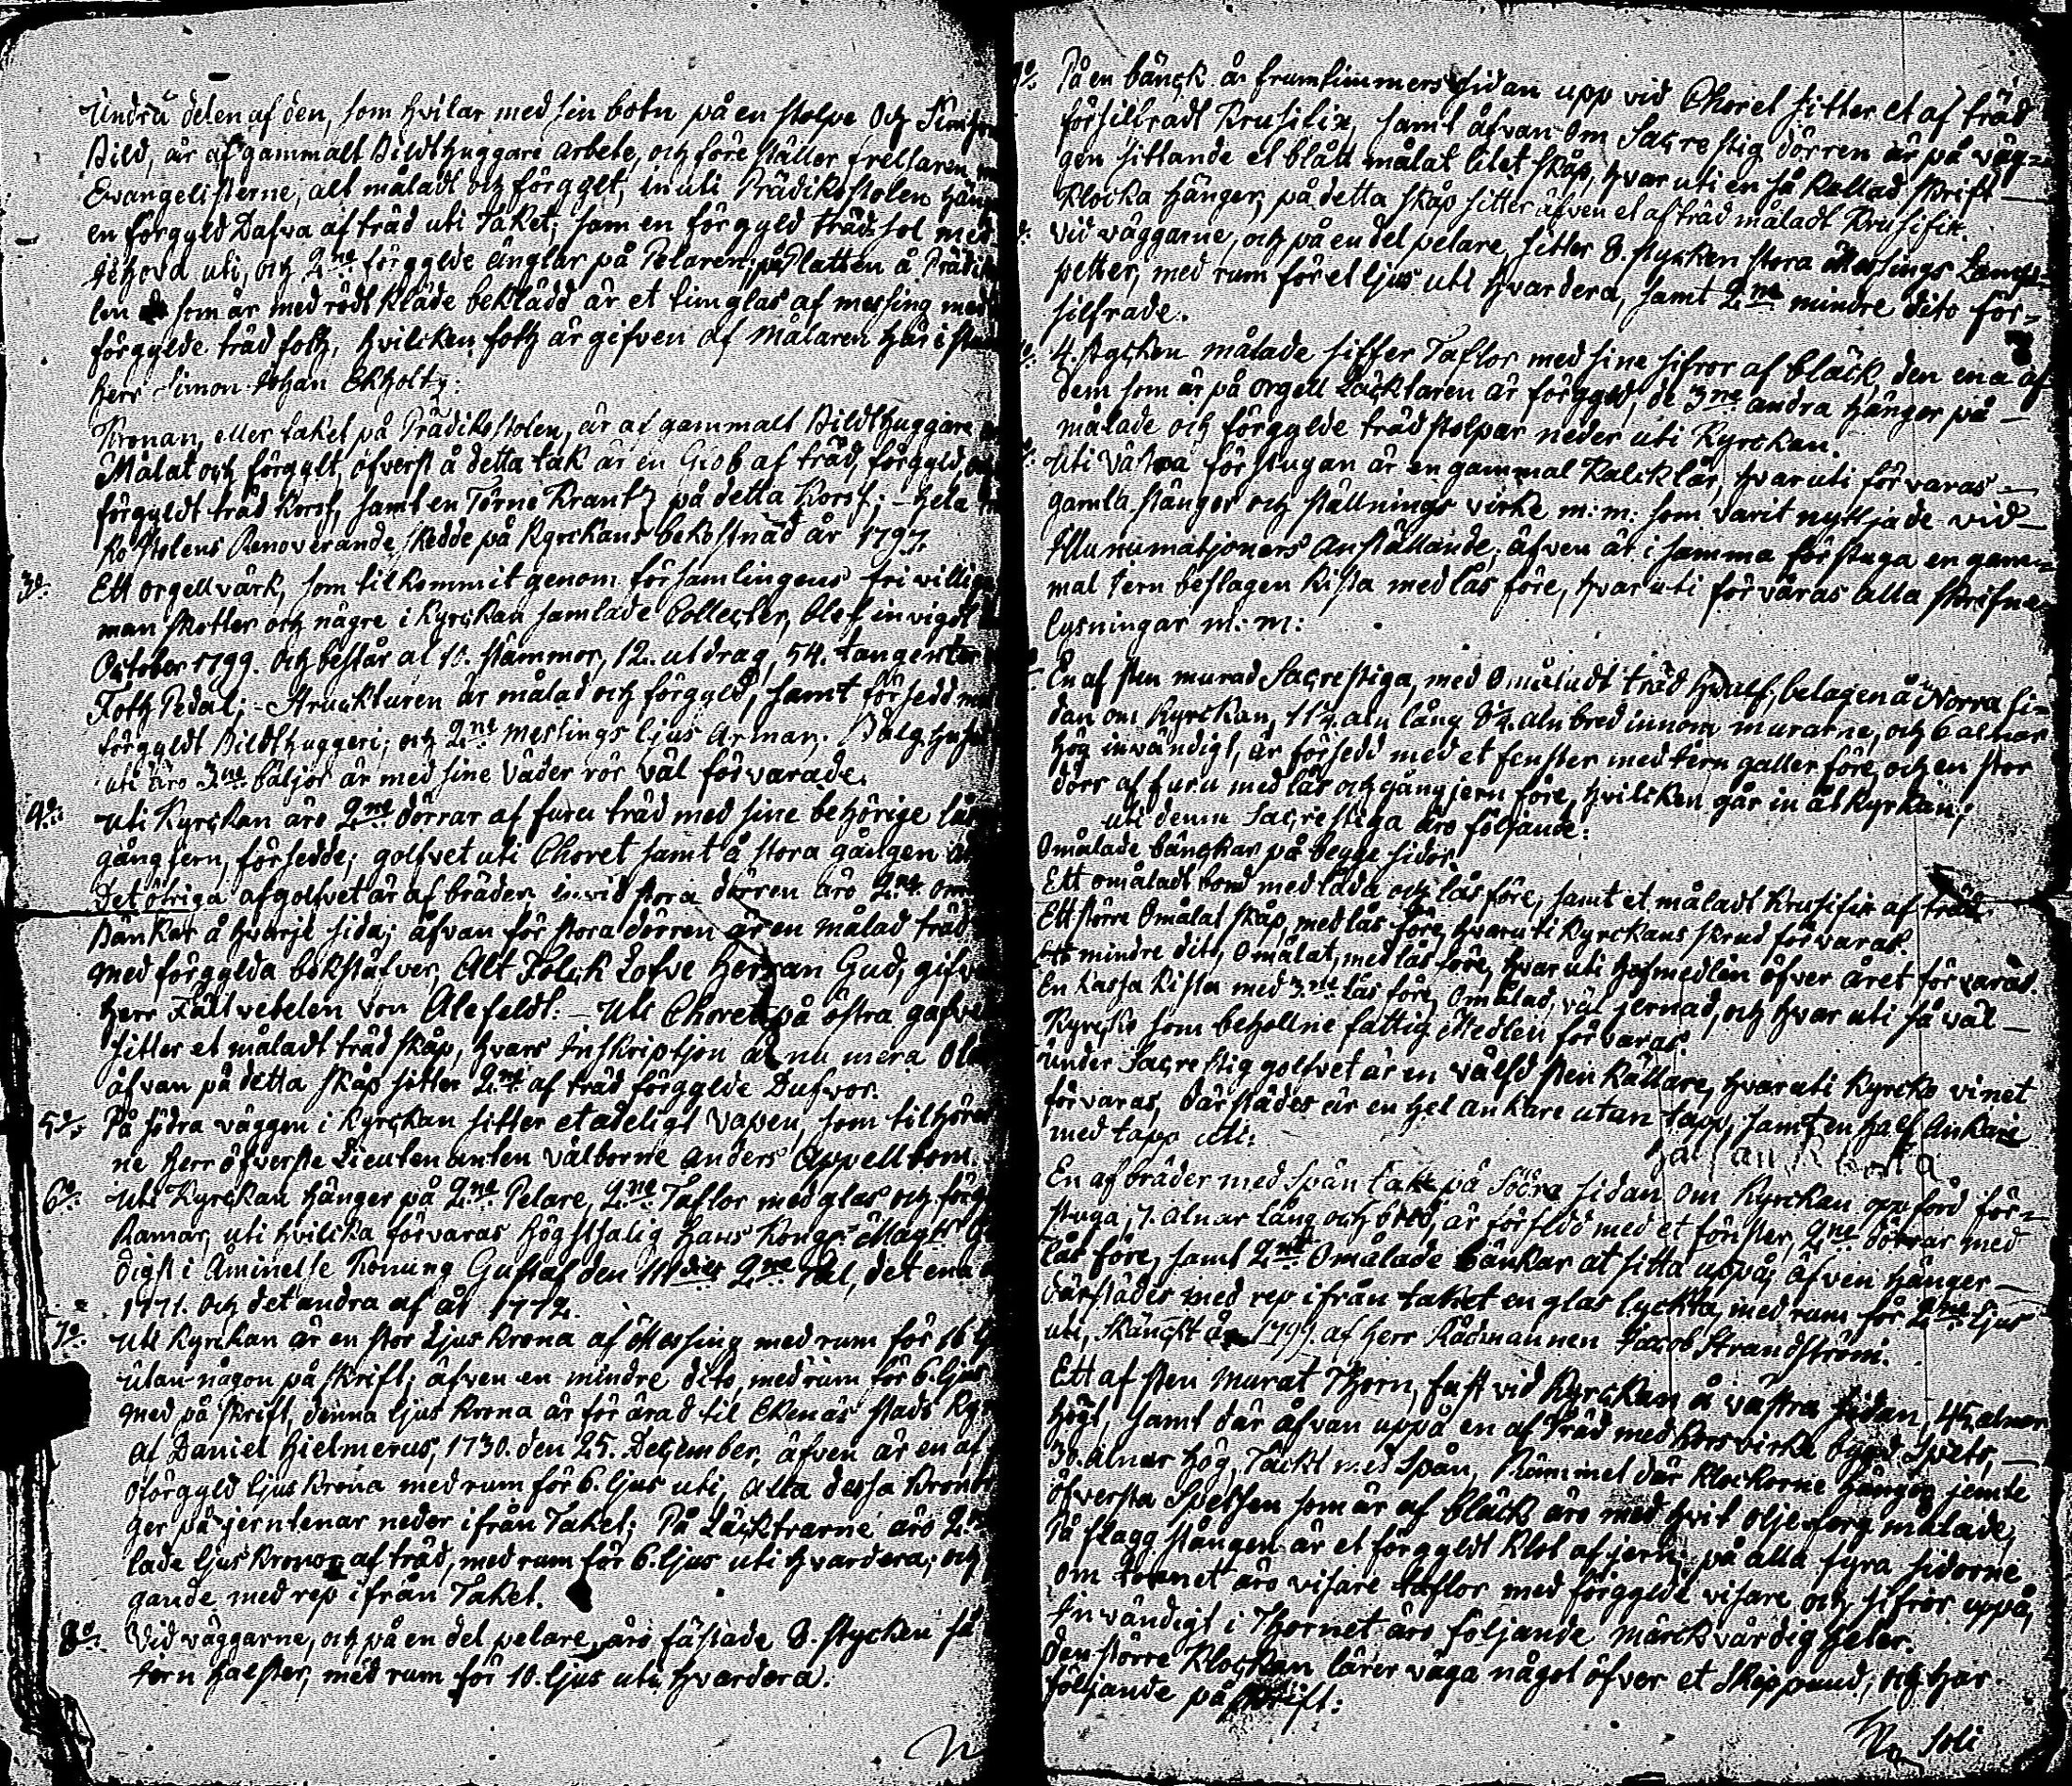 Undra delen af den, som hvilar med sin botn på en stolpe och
Bild, är af gammalt Bildthuggare arbete, ochföreställer frellaren
Evangelisterne, alt måladt och förgylt, inuti Prädikostolen
en förgyld Dufva af träd uti taket; sam en förgyld träd sol med
Jehova uti, och 2ne förgylde änglar på Pelaren; på Platten å
len som är med rödt kläde beklädd är et timglas af messing med
förgylde träd foth, hvilcken foth är gifven af Målaren här i
Herr Simon Johan Ekholtz.
Kronan, eller taket på Prädikostolen, är af gammalt Bildthuggare
Målat och förgylt, öfverst å detta tak är en Glob af träd, förgyld
förgyldt träd Kors, samt en Törne Krantz på detta Kors; – hela
kostolens Renoverande skedde på Kyrckans bekostnad år 1797.
3o. Ett orgellvärk, som tilkommit genom församlingenes friwillige
man skotter och någre i Kyrckan samlade Collecter, blef invigdt
October 1799. och består af 10. stämmor, 12. utdrag, 54. tangenter
Foth Pedal; – Struckturen är målad och förgyld, samt försedd med
förgyldt Bildthuggeri; och 2ne Messings ljus Armar.
uti äro 3ne bäljor är med sine väder rör väl förvarade.
4o. Uti Kyrckan äro 2ne dörrar af furu träd med sine behörige lås
gångjern, försedde; golfvet uti Choret samt å stora gången är
det öfriga af golfvet är af bräder. invid stora dörren äro 2ne
Bänkar å hvarje sida; åfvan för stora dörren är en målad träd
med förgylda bokstäfver, Alt Folck Lofve Herran Gud, gifven
Herr Fältvebelen von Alefeldt. – Uti Choret på östra gafvel
sitter et måladt träd skåp, hvars Inskriptjon är nu mera
åfvan på detta skåp sitter 2ne af träd förgylde Dufvor.
5o. På södra väggen i Kyrckan sitter et adeligt vapen, som tilhöra
ne Herr öfverste Lieutenanten välborne Anders Appellbom.
6o. Uti Kyrckan hänger på 2ne Pelare, 2ne Taflor med glas och
Ramar, uti hvilcka förvaras högstsalig Hans Kongl. Mayts
digst i Åminelse Konung Gustaf den III dies 2ne Tal, det ena
1771. och det andra af år 1772.
7o. Uti Kyrckan är en stor Ljus Krona af Messing med rum för 16
utan någon påskrift; äfven en mindre dito, med rum för 6. ljus
med påskrift, denna ljus krona är förärad til Ekenäs stads
af Daniel Hielmerus, 1730. den 25. Dezember, äfven är en af
oförgyld ljus Krona med rum för 6. ljus uti, alla dessa Kronor
ger på jerntenar neder ifrån Taket; På Läcktrarne äro 2ne
lade ljus kronor af träd, med rum för 6. ljus uti hvardera; och
gande med rep ifrån Taket.
8o. Vid väggarne, och på en del pelare, äro fästade 8. stycken
Jern Halster, med rum för 10. ljus uti hvardera.
9o. På en bänck å fruntimmers sidan upp vid Choret sitter et af träd
försilfradt Krusifix, samt åfvan om Sacrestig dörren är på väg-
gen sittande et blått målat litet skåp, hvaruti en så kallad skrift
Klocka hänger, på detta skåp sitter äfven et af träd måladt Krusifix.
vid väggarne, och på en del pelare, sitter 8. stycken stora Messings Lamp-
petter, med rum för et ljus uti hvardera, samt 2ne mindre dito för-
silfrade.
4. stycken målade siffer Taflor med sine sifror af bläck, den ena af
dem som är på orgell Läcktaren är förgyld, de 3ne andra hänger på
målade och förgylde träd stolpar neder uti Kyrckan.
Uti västra förstugan är en gammal Kalcklår, hvaruti förvaras
gamla stänger och ställnings virke m:m: som varit nyttjade vid
Illunumatjoners Anställande; äfven är i samma förstuga en gam-
mal Jern beslagen Kista med lås före, hvaruti förvaras alla skrifne
lysningar m:m:
En af sten murad Sacrestiga, med Omåladt träd hvalf, belagen å Norra si-
dan om Kyrckan, 11¼ aln lång 8¼ aln bred innom murarne, och 6 alnar
hög invändigt, är försedd med et fenster med Jern galler före, och en stor
dörr af furu med lås och gångjern före, hvilcken går in åt Kyrkan;
uti denna Sacrestiga äro följande:
Omålade bänckar på begge sidor.
Ett omåladt bord med låda och lås före, samt et måladt Krusifix af träd.
Ett större Omålat skåp, med lås före, hvaruti Kyrckans skrud förvaras.
Ett mindre dito, Omålat, med lås före, hvaruti håfmedlen öfver året förvaras.
En Kassa Kista med 3ne lås före, Omålad, väl jernad, och hvaruti så väl
Kyrcko som behollne fattig Medlen förvaras.
Under Sacrestig golfvet är en välfd sten Källare, hvaruti Kyrcko vinet
förvaras, därstädes är en hel ankare utan tapp, samt en half Ankare
med tapp uti.
En af bräder med Spån tak på Södra sidan om Kyrckan opförd för-
stuga, 7. alnar lång och bred, är försedd med et fönster, 2ne dörrar med
lås före, samt 2ne Omålade bänkar at sitta uppå, äfven hänger
därstädes med rep ifrån taket en glas lyckta, med rum för 2ne ljus
uti, skänckt år 1799. af Herr Rådmannen Jacob Strandström.
Ett af sten Murat Thorn, fast vid Kyrckan å västra sidan, 45 alnar
högt, samt där åfvan uppå en af Träd med Korsvircke bygd Spets,
30. alnar hög, Täckt med Spån, Rummet där Klockorne hänger jemte
öfversta Spetsen som är af bläck äro med hvit oljeferg målade;
På flagg stången är et förgyldt klot af jern, på alla fyra sidorne
om tornet äro visare taflor med förgylde visare och sifror uppå,
Invändigt i Thornet äro följande märckvärdigheter.
Den större Klockan lärer väga något öfver et Skeppund, och har
följande påskrift:
Soli